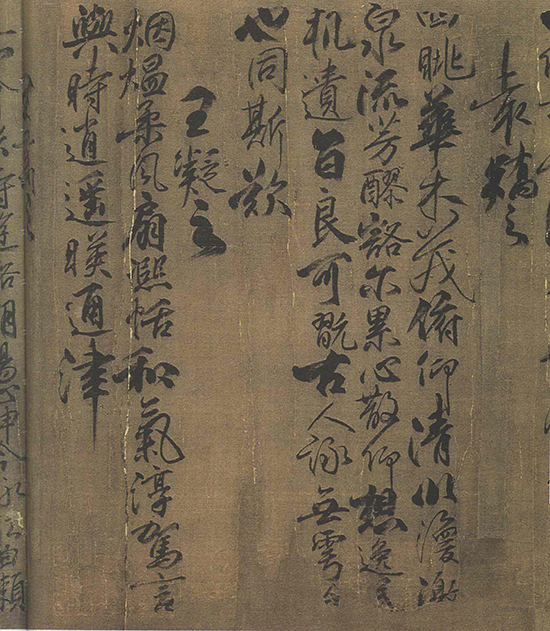 袁嶠之
四眺華木茂俯仰清川渙激
泉流芳醪豁尔累心散仰想逸民
軌遺音良可翫古人詠無雩今
也同斯歡
王凝之
烟熅柔風扇熙恬和氣淳駕言
興時逍遥暎通津